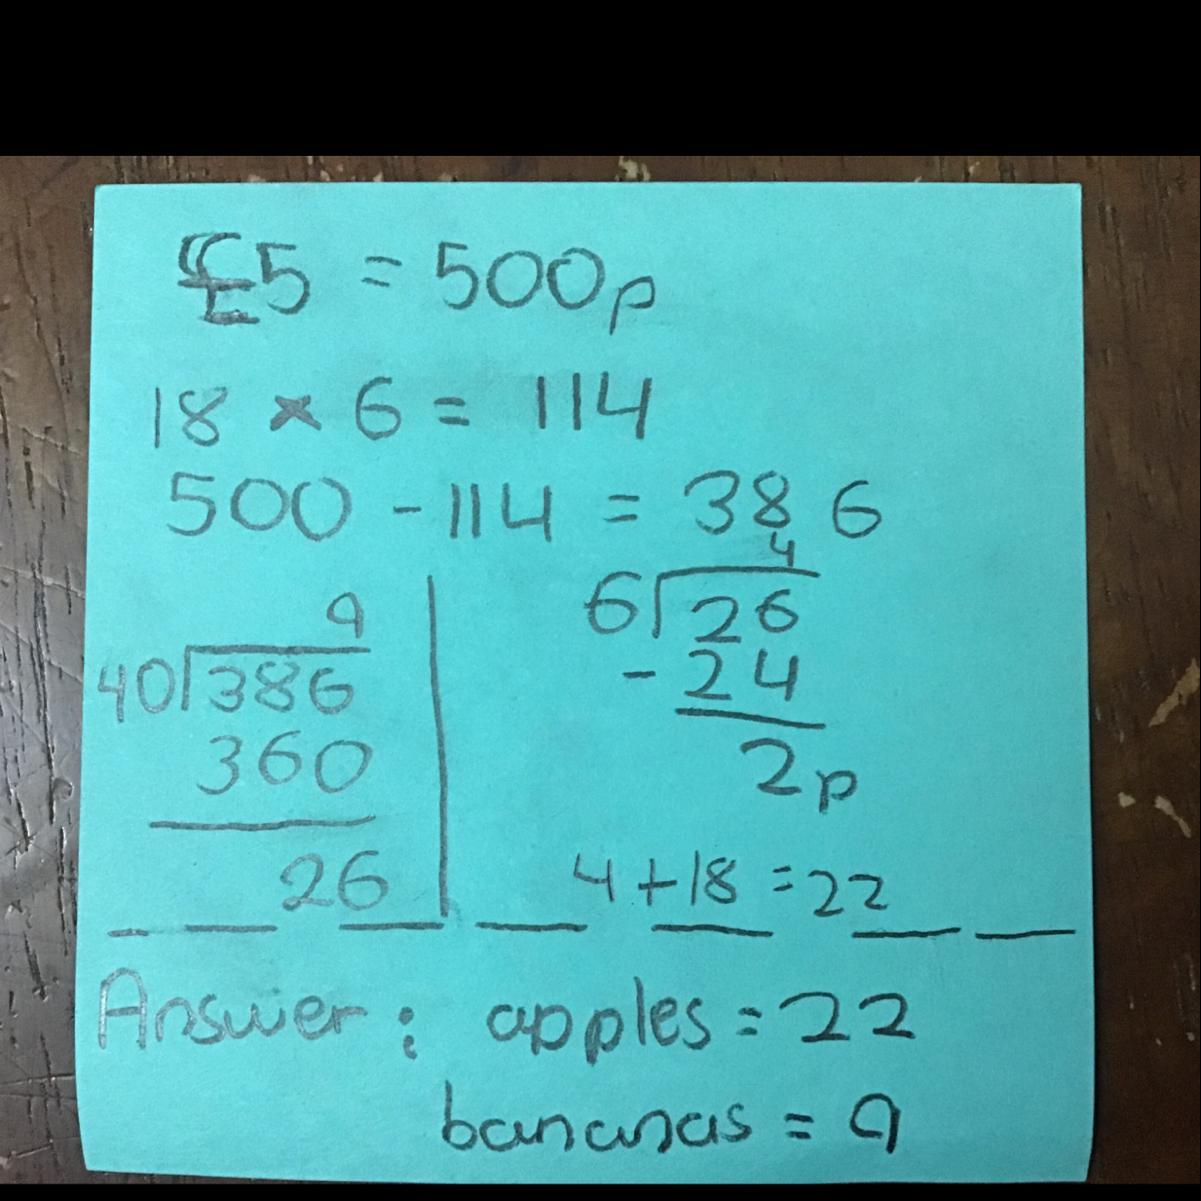 £5 = 500p
18 × 6 = 114
500 - 114 = 386
9
40 386
360
26
4
6 26
- 24
2p
4 + 18 = 22
Answer: apples = 22
bananas = 9